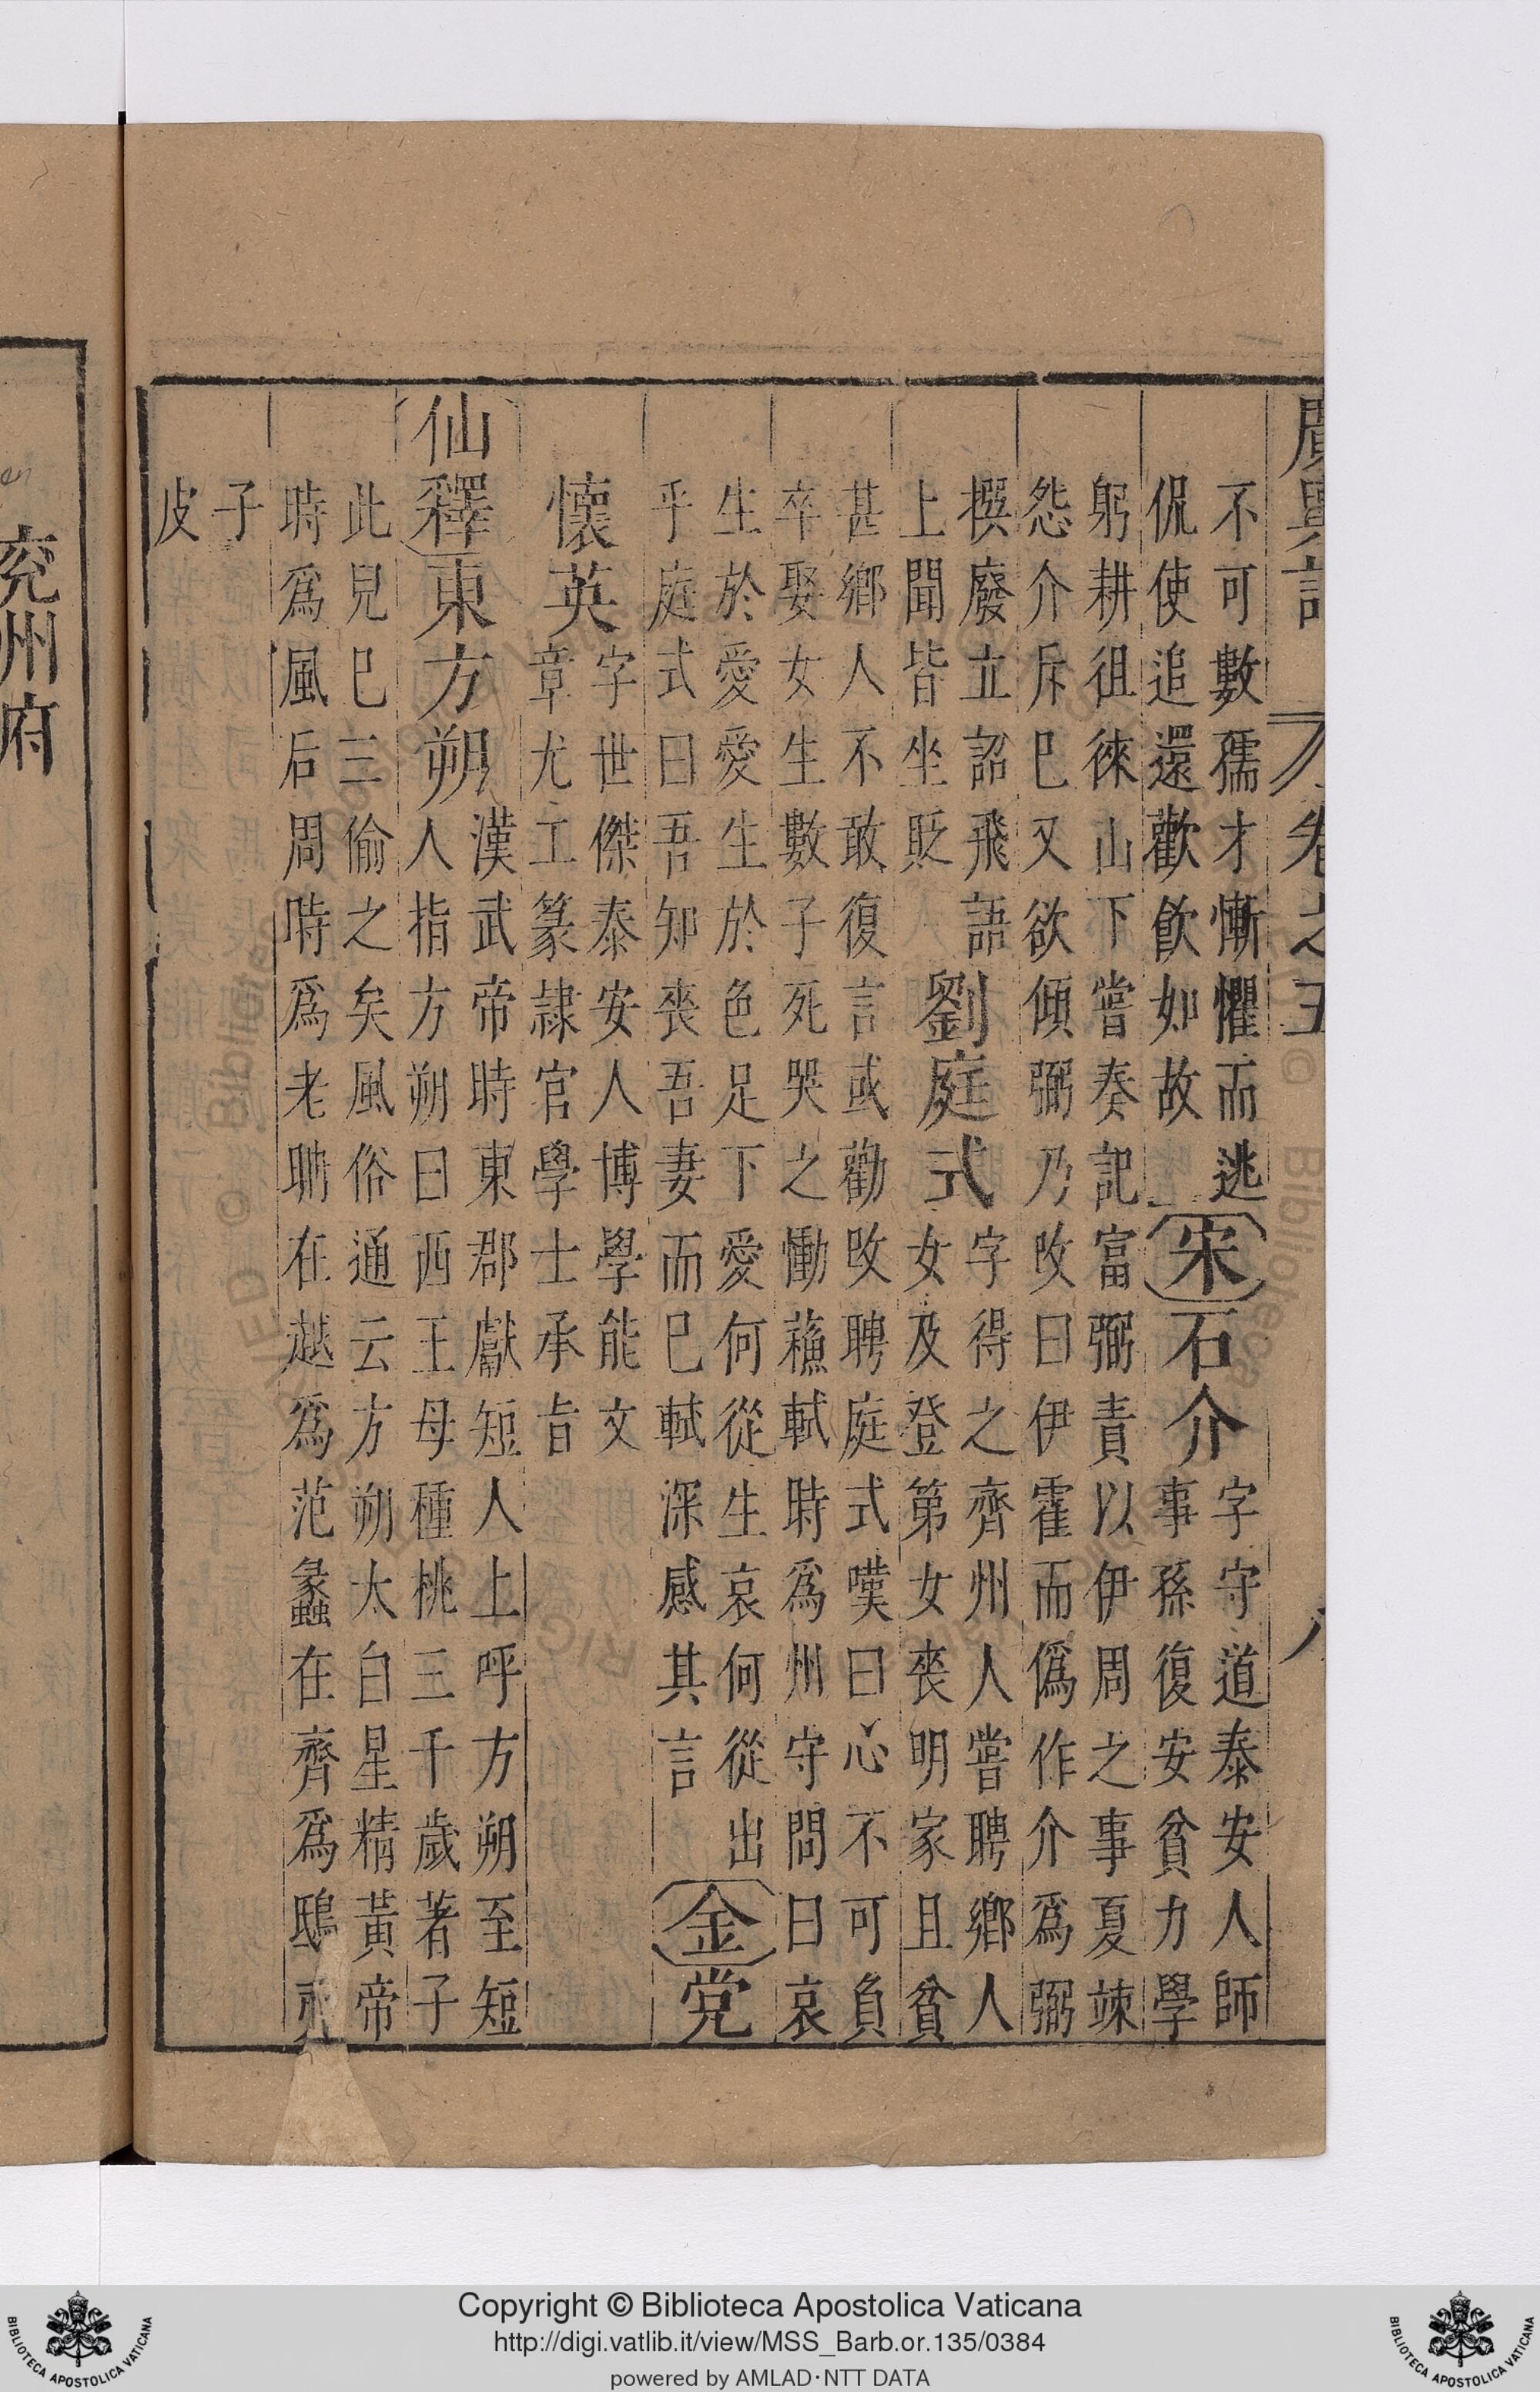 廣輿記 卷之五
不可數孺才慚懼而逃
侃使追還歡飲如故
宋石介
字守道泰安人師
事孫復安貧力學
躬耕徂徠山下嘗奏記富弼責以伊周之事夏竦
怨介斥巳又欲傾弼乃改曰伊霍而僞作介爲弼
撰廢立詔飛語
上聞皆坐貶
劉庭式
字得之齊州人嘗聘鄉人
女及登第女喪明家且貧
甚鄉人不敢復言或勸改聘庭式嘆曰心不可負
卒娶女生數子死哭之慟蘓軾時爲州守問曰哀
生於愛愛生於色足下愛何從生哀何從出
乎庭式曰吾知喪吾妻而巳軾深感其言
金党
懷英
字世傑泰安人博學能文
章尤工篆隷官學士承旨
仙釋東方朔
漢武帝時東郡獻短人上呼方朔至短
人指方朔曰西王母種桃三千歲著子
此兒巳三偷之矣風俗通云方朔太白星精黃帝
時爲風后周時爲老聃在越爲范蠡在齊爲鴟夷
子
皮
兖州府
Copyright © Biblioteca Apostolica Vaticana
http://digi.vatlib.it/view/MSS_Barb.or.135/0384
powered by AMLAD·NTT DATA
BIBLIOTECA APOSTOLICA VATICANA
BIBLIOTECA APOSTOLICA VATICANA